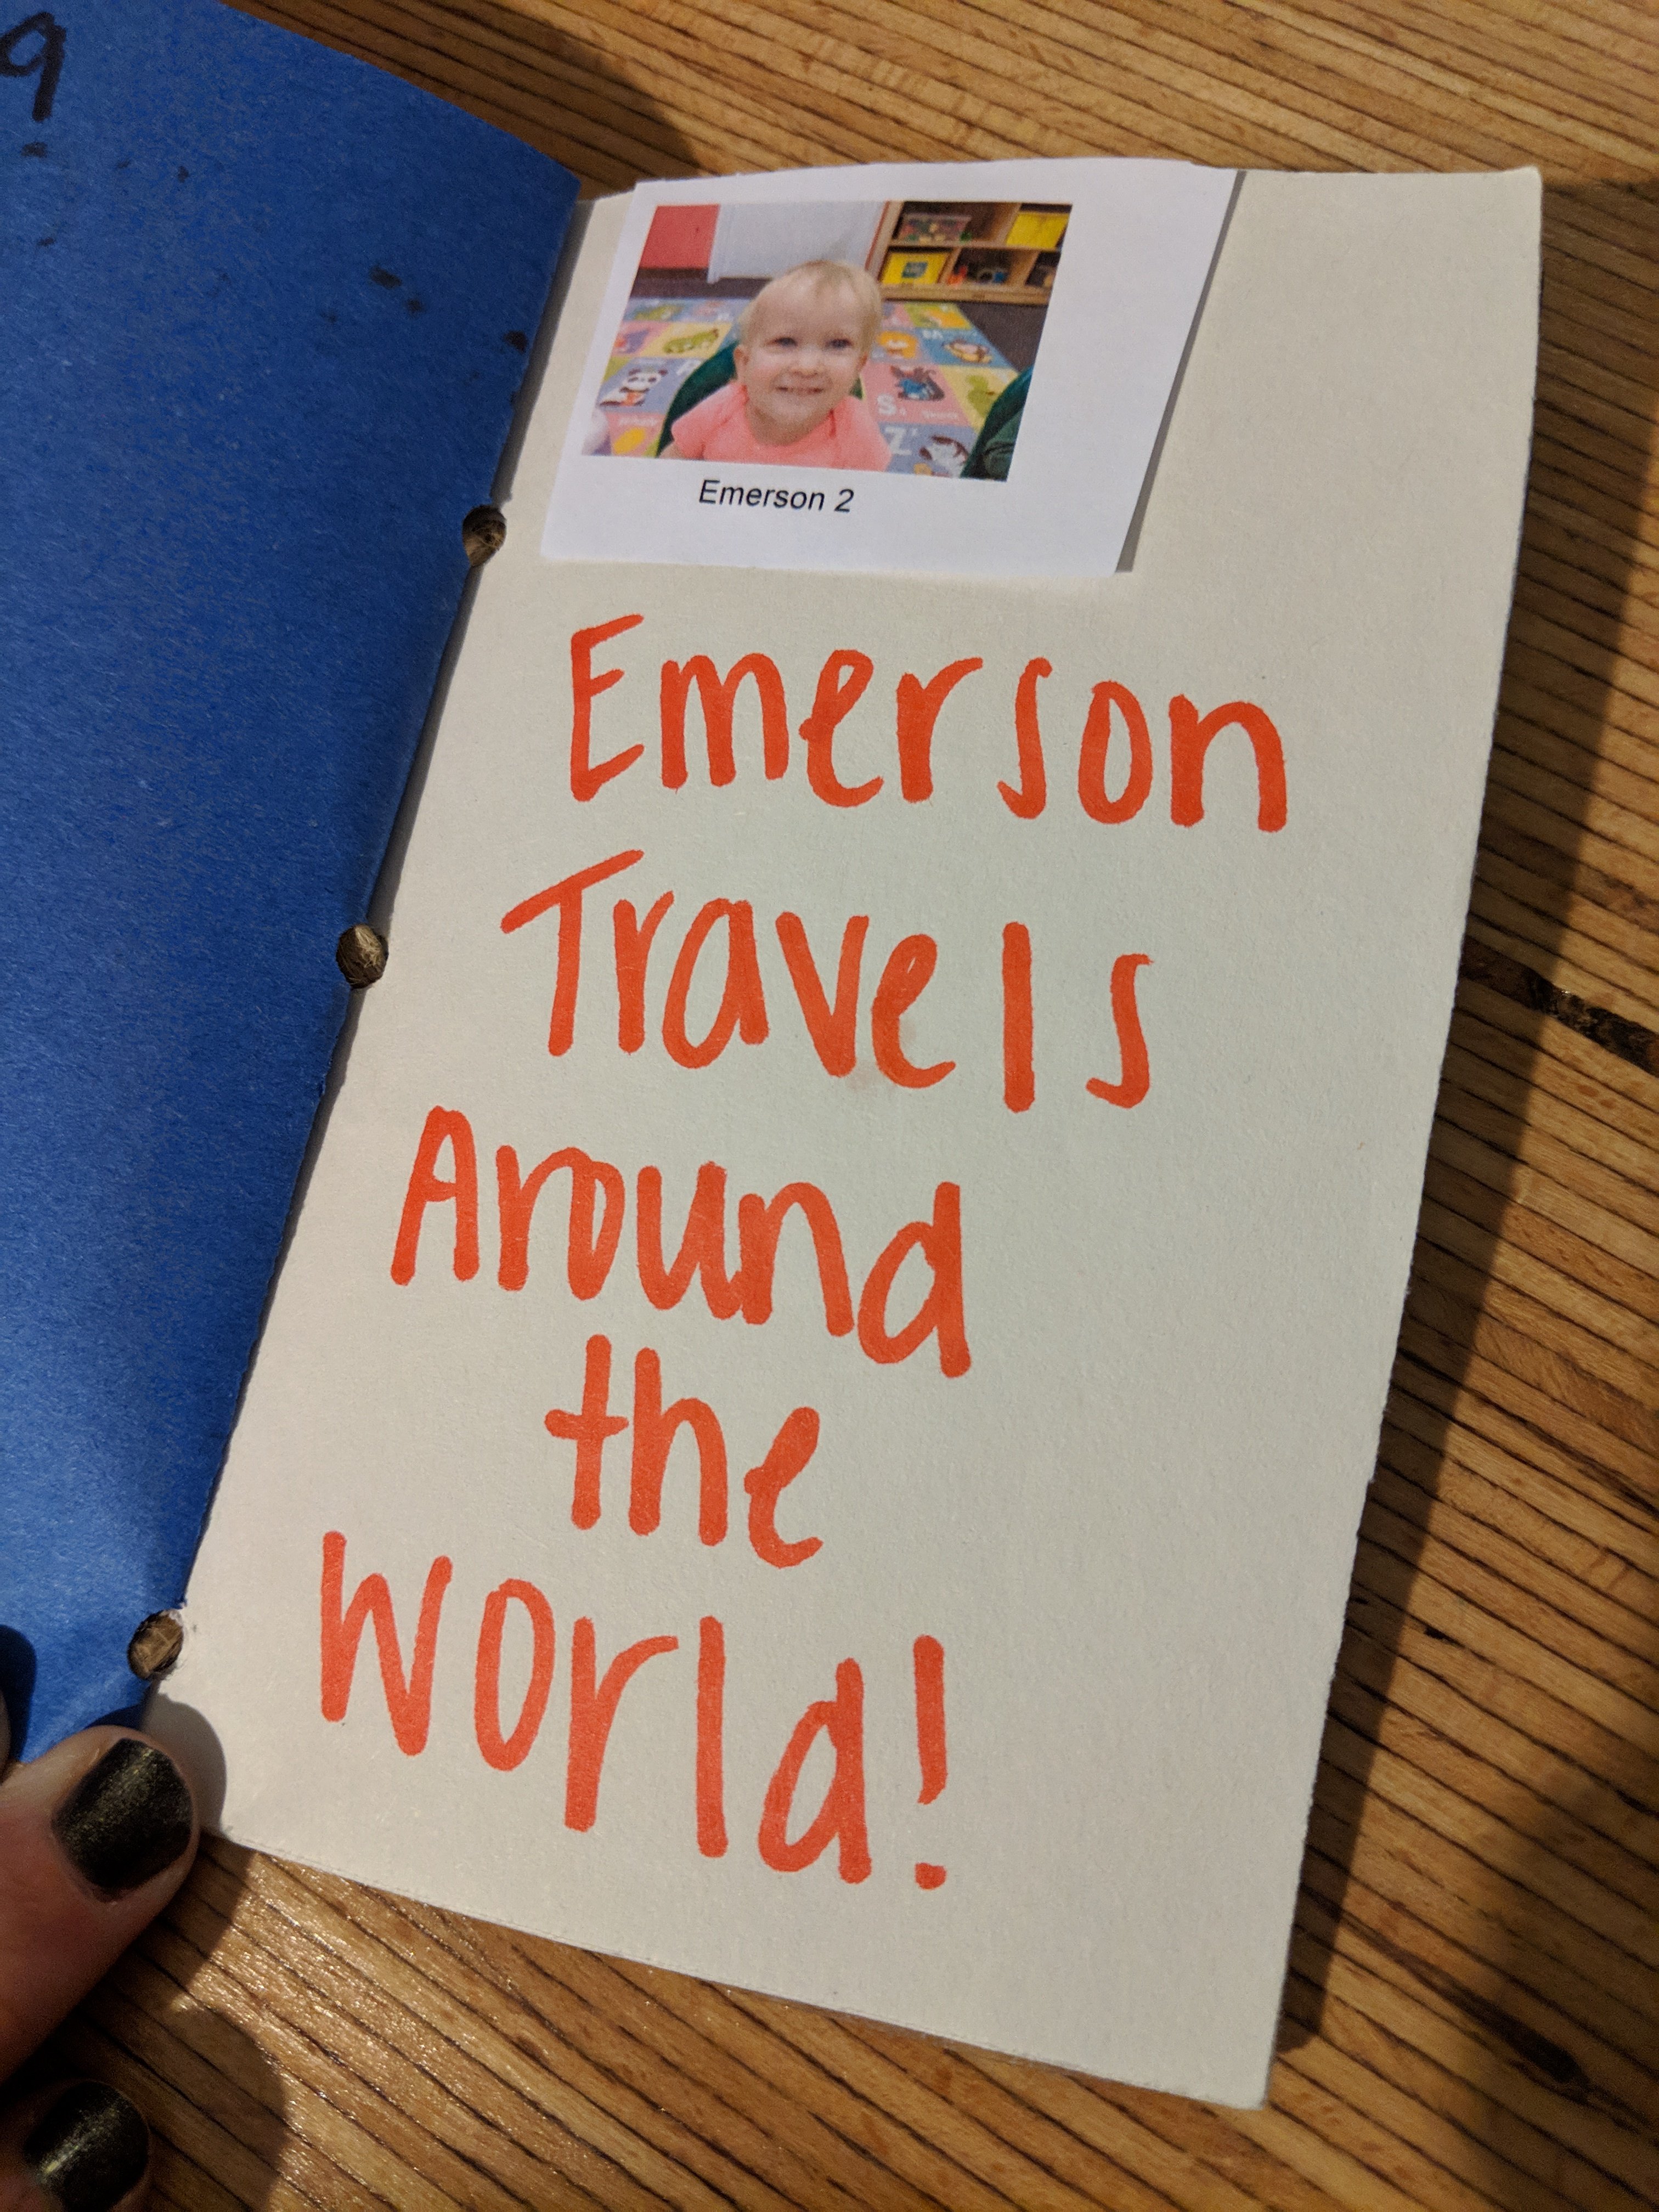 9
Emerson 2
Emerson
Travels
Around
the
World!